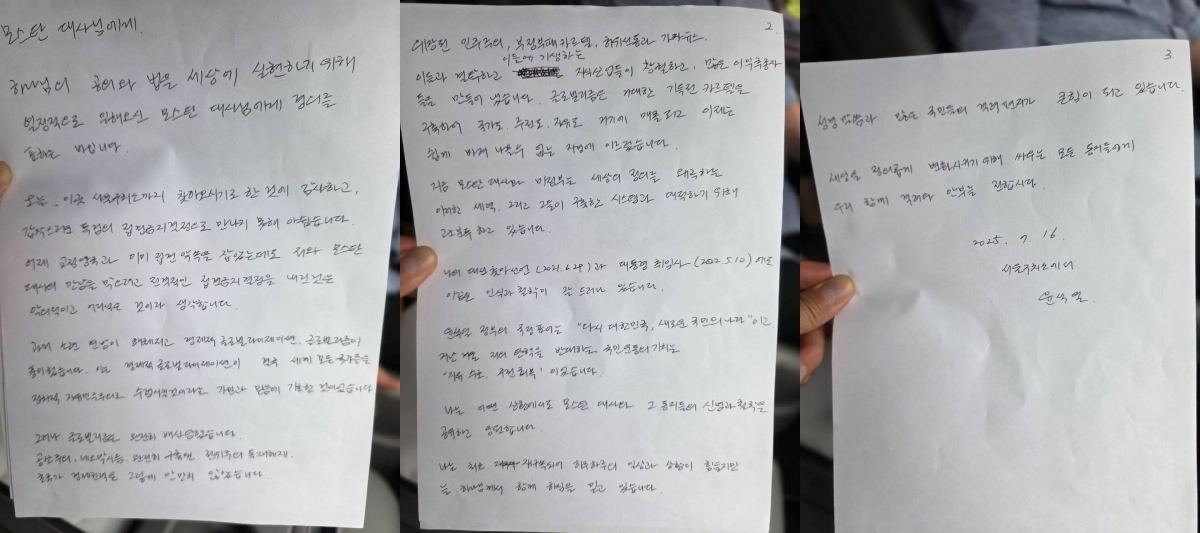 모스탄 대사님에게.
하나님의 공의와 법을 세상에 실현하기 위해
열정적으로 일해오신 모스탄 대사님에게 경의를
표하는 바입니다.
오늘, 이곳 서울구치소까지 찾아오시기로 한 것에 감사하고,
갑작스러운 특검의 접견금지결정으로 만나지 못해 아쉽습니다.
어제 교정당국과 이미 접견 약속을 잡았는데도 저와 모스탄
대사의 만남을 막으려고 전격적인 접견금지결정을 내린 것은
악의적이고 어리석은 것이라 생각합니다.
과거 소련 연방이 해체되고 경제적 글로벌라이제이션, 글로벌리즘이
풍미했습니다. 이는 경제적 글로벌라이제이션이 전 세계 모든 국가들을
정치적 자유민주주의로 수렴시킬 것이라는 가련한 믿음에 기초한 것이었습니다
그러나 글로벌리즘은 완전히 배신당했습니다.
공산주의, 네오막시즘, 완전히 구축된 전체주의 독재체제,
초국가 경제권력은 그렇게 만만치 않았습니다
2.
위장된 민주주의, 부정부패 카르텔, 허위선동과 가짜뉴스.
이들에 기생하는
이들과 결탁하고 자식산업들이 창궐하고, 많은 이익추종자
들을 만들어 냈습니다. 글로벌리즘은 거대한 기득권 카르텔을
구축하여 국가도, 주권도, 자유도 거기에 매몰되고 이제는
쉽게 빠져 나올 수 없는 지경에 이르렀습니다.
지금 모스탄 대사와 미정부는 세상의 정의를 왜곡하는
이러한 세력, 그리고 그들이 구축한 시스템과 대적하기 위해
고군분투 하고 있습니다.
나의 대선출마선언 (2021.6.29)과 대통령 취임사 (2022.5.10)에도
이같은 인식과 철학이 잘 드러나 있습니다.
윤석열 정부의 국정표어는 "다시 대한민국, 새로운 국민의 나라"이고
지난 겨울 저의 탄핵을 반대하는 국민운동의 기치는
"자유 수호, 주권 회복" 이었습니다.
나는 어떤 상황에서도 모스탄 대사와 그 동지들의 신념과 철학을
공유하고 응원합니다.
나는 최근 재구속되어 하루하루의 일상과 상황이 힘들지만
늘 하나님께서 함께 하심을 믿고 있습니다.
3
성경 말씀과 많은 국민들의 격려 편지가 큰 힘이 되고 있습니다.
세상을 정의롭게 변화시키기 위해 싸우는 모든 동지들에게
우리 함께 격려와 안부를 전합시다.
2025. 7. 16.
서울구치소에서
윤석열.